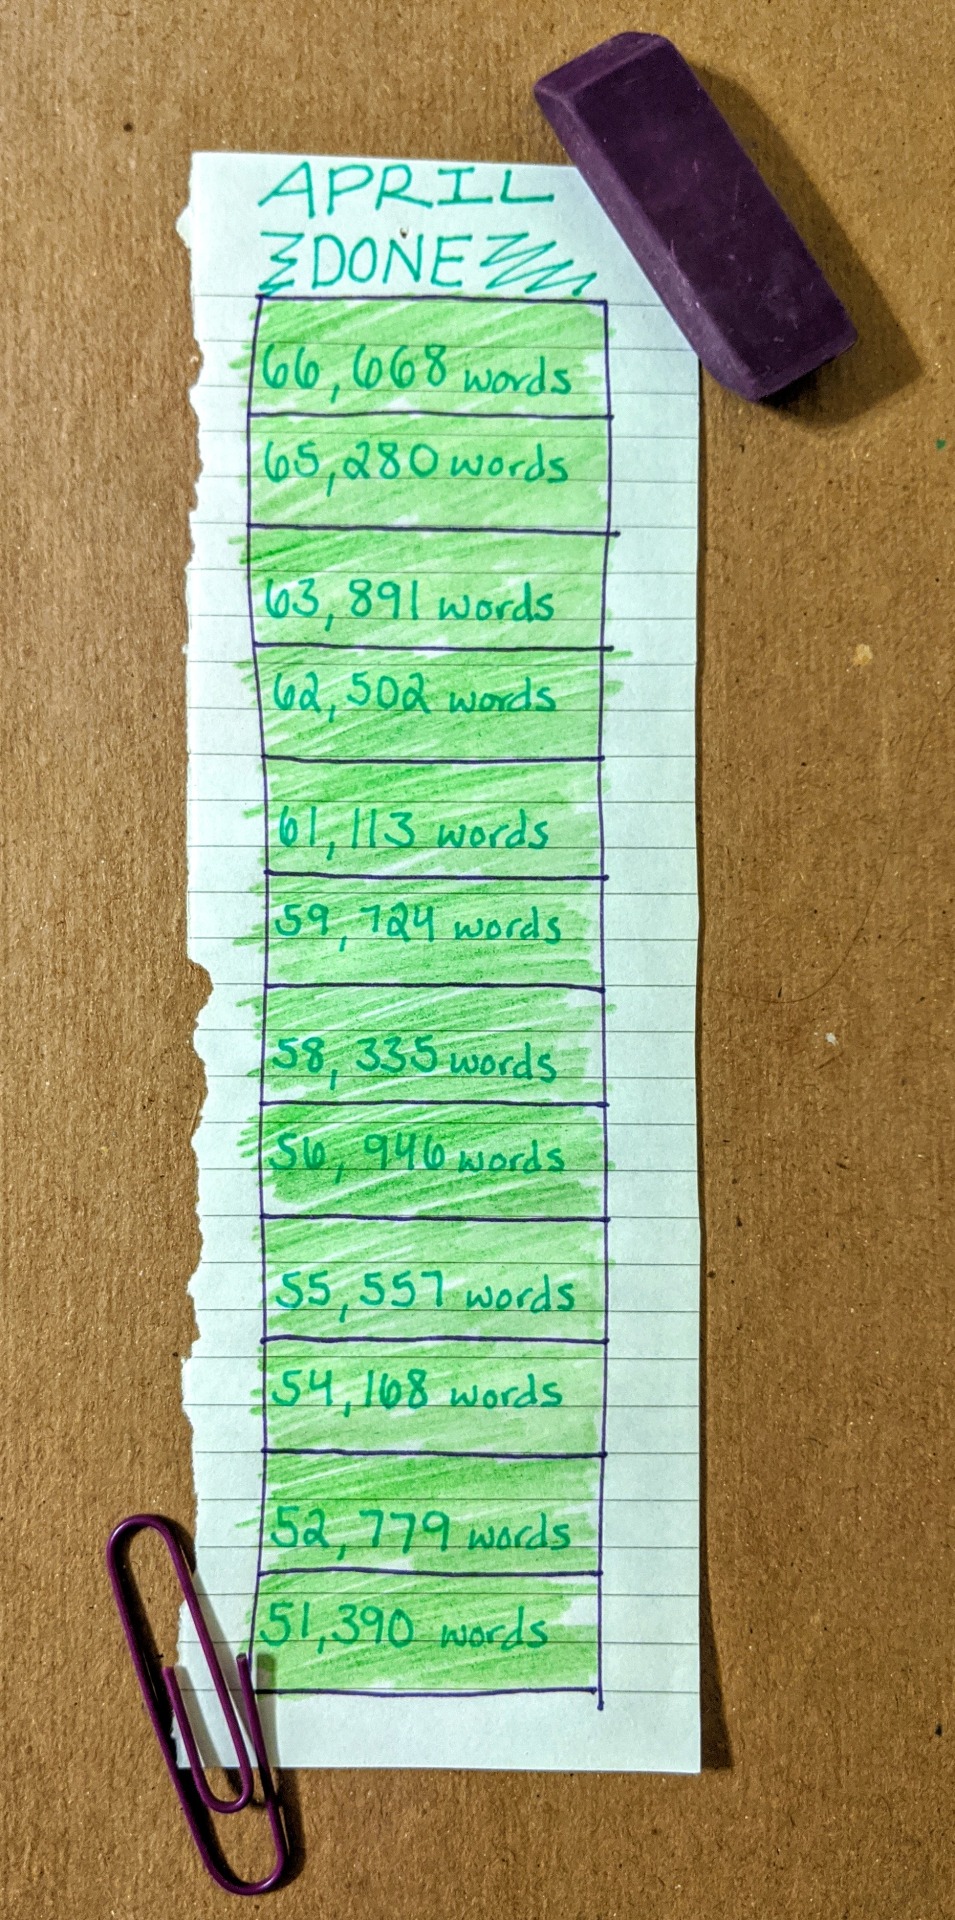 APRIL
DONE
66,668 words
65,280 words
63,891 words
62,502 words
61,113 words
59,724 words
58,335 words
56,946 words
55,557 words
54,168 words
52,779 words
51,390 words